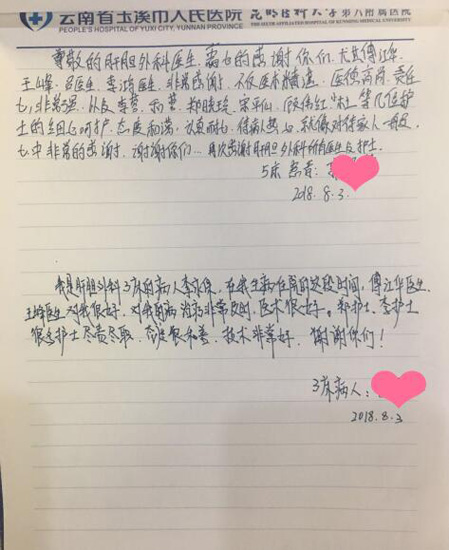 云南省玉溪市人民医院 昆明医科大学第六附属医院
PEOPLE'S HOSPITAL OF YUXI CITY, YUNNAN PROVINCE THE SIXTH AFFILIATED HOSPITAL OF KUNMING MEDICAL UNIVERSITY
尊敬的肝胆外科医生、衷心的感谢你们、尤其傅江华
王峰、医生、李鸿医生、非常感谢、不仅医术精湛、医德高尚、责任
心非常强、以及李 郑 宋平仙、 等几位护
士的细心呵护、态度和蔼、认真耐心、待病人热心、就像对待家人一般、
心中非常的感谢、谢谢你们… 再次感谢肝胆外科所有医生与护士
5床患者:
2018.8.3
我是肝胆外科3床的病人李 在我生病住院的这段时间,傅江华医生,
王峰医生对我很好,对我的病治疗非常及时,医术很好。郑护士、李护士
很多护士尽责尽职,态度很和善,技术非常好,谢谢你们!
3床病人:
2018.8.3